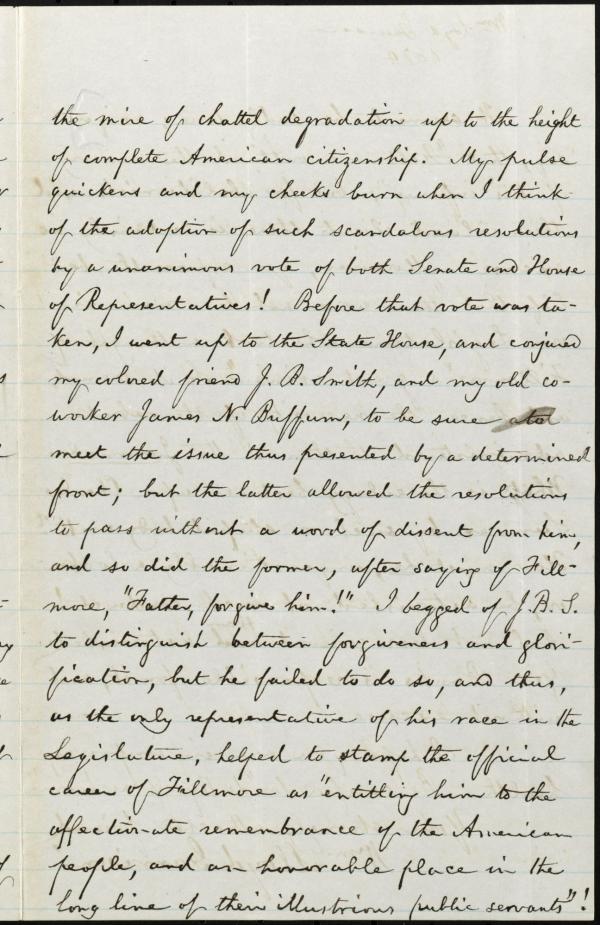 the mire of chattel degradation up to the height
of complete American citizenship. My pulse
quickens and my cheeks burn when I think
of the adoption of such scandalous resolutions
by a unanimous vote of both Senate and House
of Representatives! Before that vote was ta-
ken, I went up to the State House, and conjured
my colored friend J. B. Smith, and my old co-
worker James N. Buffum, to be sure
meet the issue thus presented by a determined
front; but the latter allowed the resolutions
to pass without a word of dissent from him,
and so did the former, after saying of Fill-
more, "Father, forgive him!" I begged of J. B. S.
to distinguish between forgiveness and glori-
fication, but he failed to do so, and thus,
as the only representative of his race in the
Legislature, helped to stamp the official
career of Fillmore as "entitling him to the
affectionate remembrance of the American
people, and an honorable place in the
long line of their illustrious public servants"!